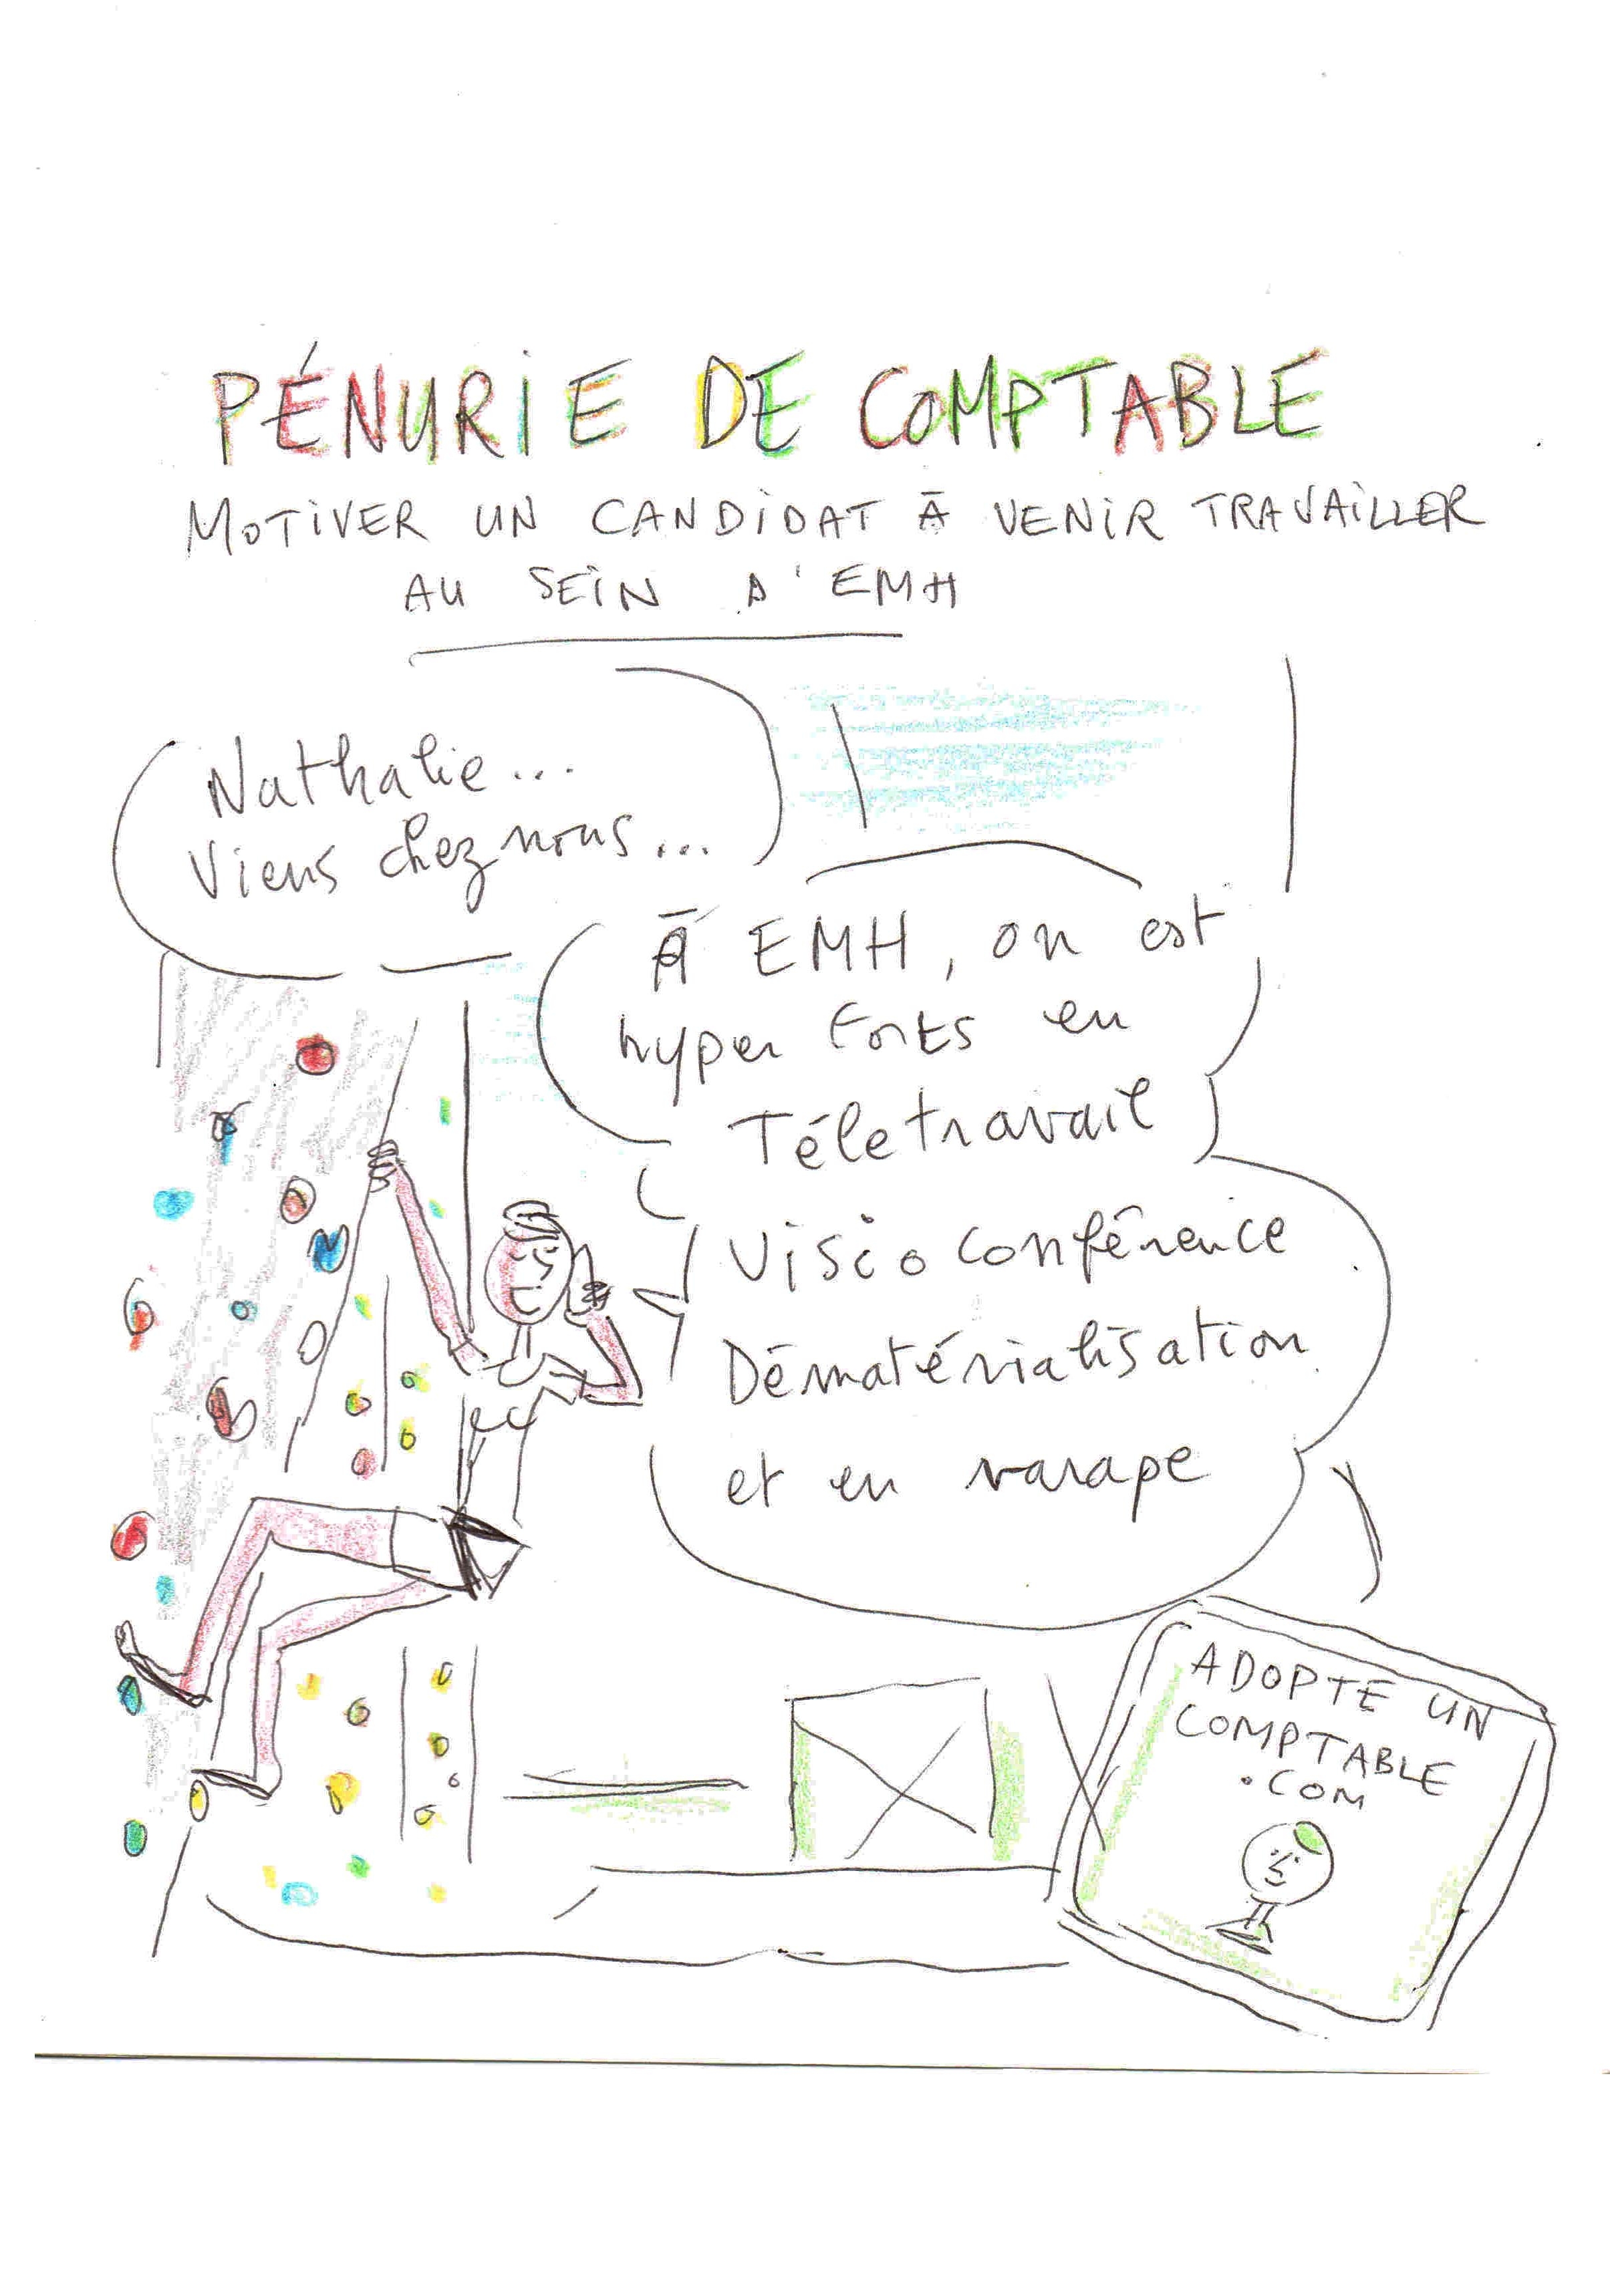 PÉNURIE DE COMPTABLE
MOTIVER UN CANDIDAT À VENIR TRAVAILLER
AU SEIN D'EMH
Nathalie...
Viens chez nous...
À EMH, on est
hyper forts en
Télétravail
Visioconférence
Dématérialisation
et en varape
ADOPTE UN
COMPTABLE
.COM